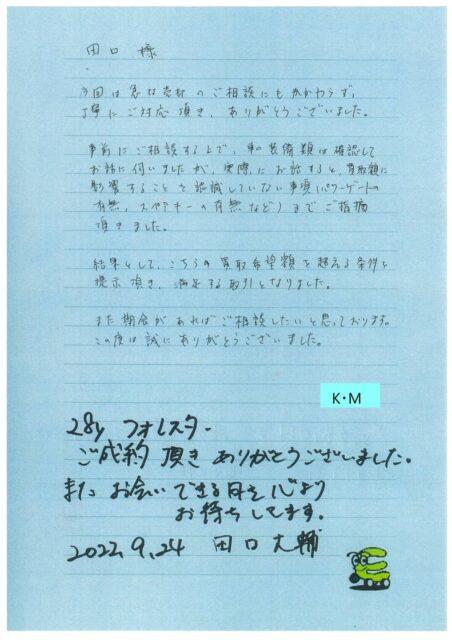 田口 様
今回は急な売却のご相談にもかかわらず、
丁寧にご対応頂き、ありがとうございました。
事前にご相談する上で、車の装備類は確認して
お話に伺いましたが、実際にお話すると、買取額に
影響することを認識していない事項(パワーゲートの
有無、スペアキーの有無など)までご指摘
頂きました。
結果として、こちらの買取希望額を超える条件を
提示頂き、満足する取引となりました。
また機会があればご相談したいと思っております。
この度は誠にありがとうございました。
K・M
28y フォレスター
ご成約頂きありがとうございました。
また お会いできる日を心より
お待ちしてます。
2022.9.24 田口大輔